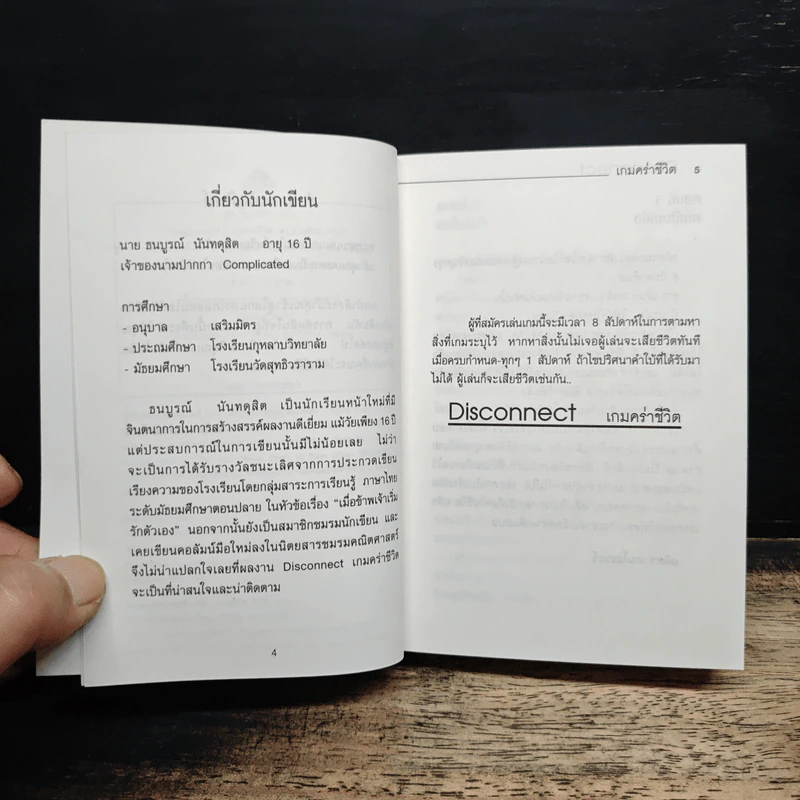 เกี่ยวกับนักเขียน
นาย ธนบูรณ์ นันทดุสิต อายุ 16 ปี
เจ้าของนามปากกา Complicated
การศึกษา
- อนุบาล เสริมมิตร
- ประถมศึกษา โรงเรียนกุหลาบวิทยาลัย
- มัธยมศึกษา โรงเรียนวัดสุทธิวราราม
ธนบูรณ์ นันทดุสิต เป็นนักเรียนหน้าใหม่ที่มี
จินตนาการในการสร้างสรรค์ผลงานดีเยี่ยม แม้วัยเพียง 16 ปี
แต่ประสบการณ์ในการเขียนนั้นมีไม่น้อยเลย ไม่ว่า
จะเป็นการได้รับรางวัลชนะเลิศจากการประกวดเขียน
เรียงความของโรงเรียนโดยกลุ่มสาระการเรียนรู้ ภาษาไทย
ระดับมัธยมศึกษาตอนปลาย ในหัวข้อเรื่อง "เมื่อข้าพเจ้าเริ่ม
รักตัวเอง" นอกจากนั้นยังเป็นสมาชิกชมรมนักเขียน และ
เคยเขียนคอลัมน์มือใหม่ลงในนิตยสารชมรมคณิตศาสตร์
จึงไม่น่าแปลกใจเลยที่ผลงาน Disconnect เกมคร่าชีวิต
จะเป็นที่น่าสนใจและน่าติดตาม
4
เกมคร่าชีวิต 5
ผู้ที่สมัครเล่นเกมนี้จะมีเวลา 8 สัปดาห์ในการตามหา
สิ่งที่เกมระบุไว้ หากหาสิ่งนั้นไม่เจอผู้เล่นจะเสียชีวิตทันที
เมื่อครบกำหนด-ทุกๆ 1 สัปดาห์ ถ้าไขปริศนาคำใบ้ที่ได้รับมา
ไม่ได้ ผู้เล่นก็จะเสียชีวิตเช่นกัน..
Disconnect เกมคร่าชีวิต